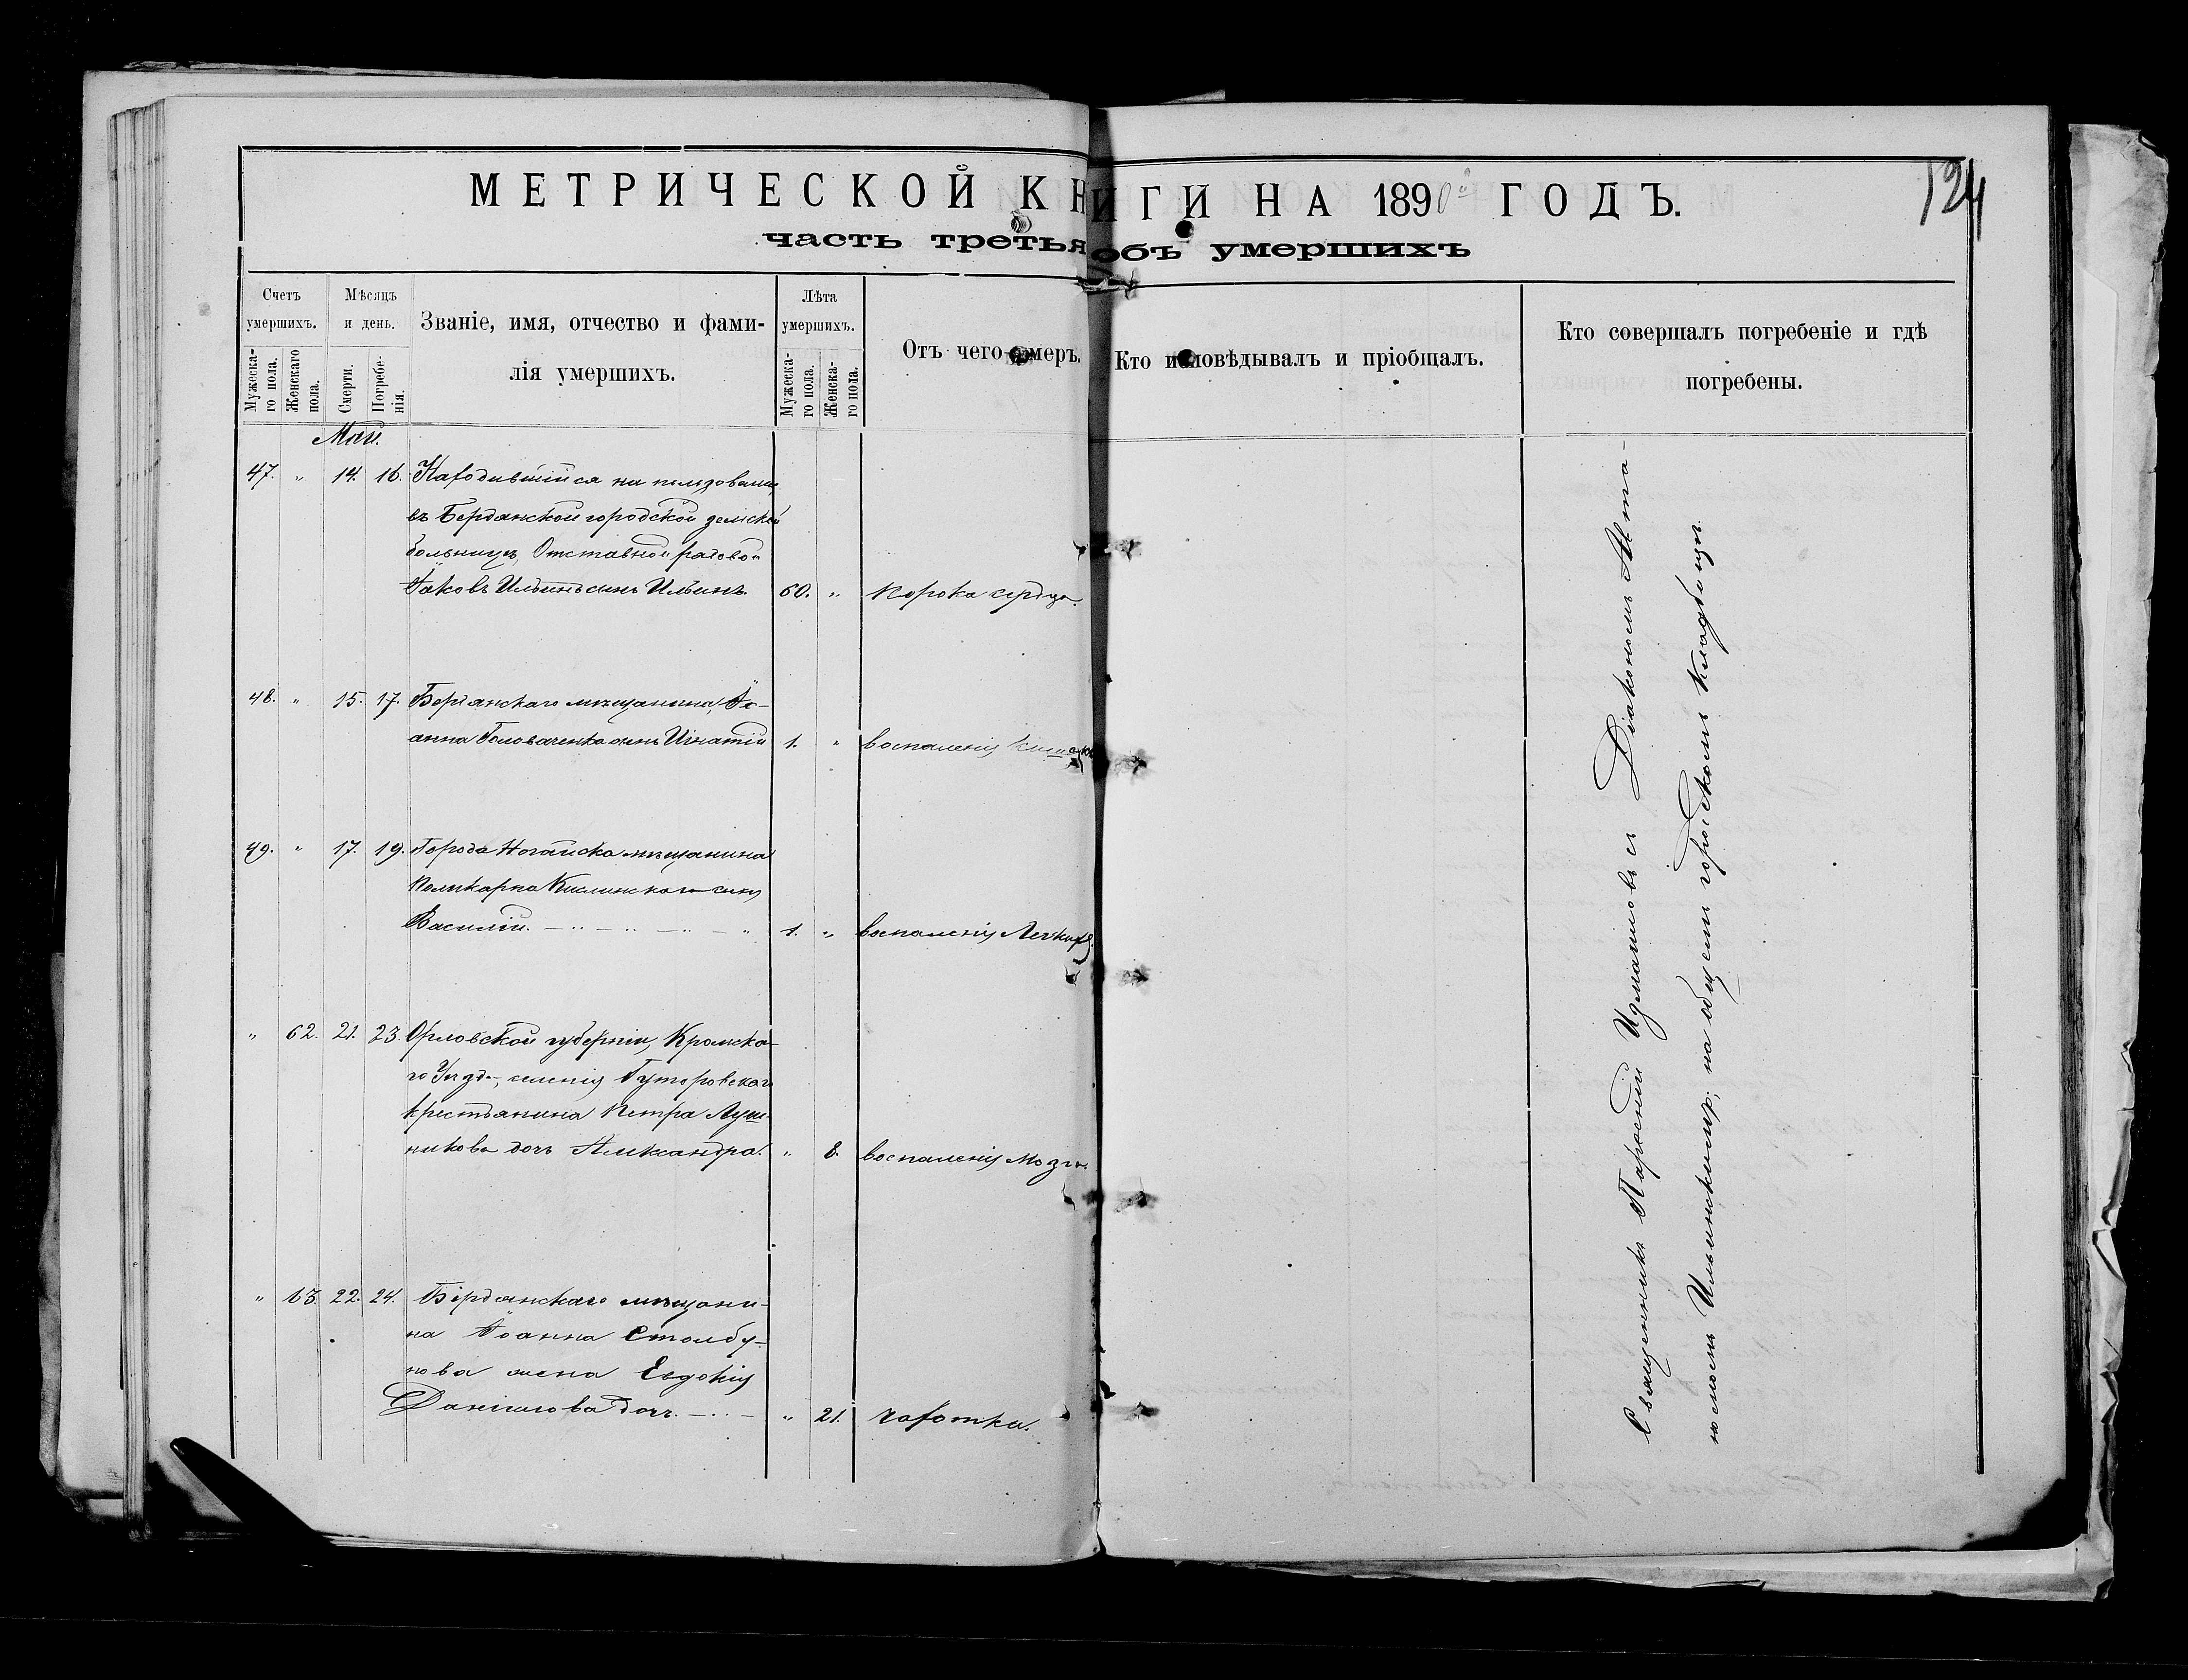 МЕТРИЧЕСКОЙ КНИГИ НА 1890й ГОДЪ.
124
часть третья объ умершихъ
Счетъ умершихъ.
Мужеска-го пола.
Женскаго пола.
Мѣсяцъ и день.
Смерти.
Погребе-нія.
Званіе, имя, отчество и фами-
лія умершихъ.
Лѣта умершихъ.
Мужеска-го пола.
Женска-го пола.
Отъ чего умеръ.
Кто исповѣдывалъ и пріобщалъ.
Кто совершалъ погребеніе и гдѣ
погребены.
Май.
47. " 14. 16. Находившійся на пользованіи
въ Бердянской городской земской
больницѣ, Отставной рядовой
Іаковъ Ильинъ сынъ Ильинъ. 60. " Порока сердца.
48. " 15. 17. Бердянскаго мѣщанина, Іо-
анна Головаченка сынъ Игнатій 1. " воспаленія кишекъ
49. " 17. 19. Города Ногайска мѣщанина
Поликарпа Кислинскаго сынъ
Василій. 1. " воспаленія Легкихъ.
" 62. 21. 23. Орловской губерніи, Кромска-
го Уѣзда, селенія Гуторовскаго
крестьянина Петра Луш-
никова дочь Александра. " 8. воспаленія мозга.
" 63. 22. 24. Бердянскаго мѣщани-
на Іоанна Столбу-
нова жена Евдокія
Даніилова дочь. " 21. чахотка.
Священникъ Парѳеній Измаиловъ съ Діакономъ
Ильинскимъ; на общемъ городскомъ кладбищѣ.